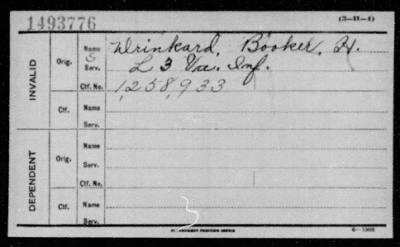 1493776
(3-H-4)
INVALID
Orig.
Name Drinkard, Booker, H.
S
Serv. L 3 Va. Inf.
Ctf. No. 1,258,933
Ctf.
Name
Serv.
DEPENDENT
Orig.
Name
Serv.
Ctf. No.
Ctf.
Name
Serv.
GOVERNMENT PRINTING OFFICE